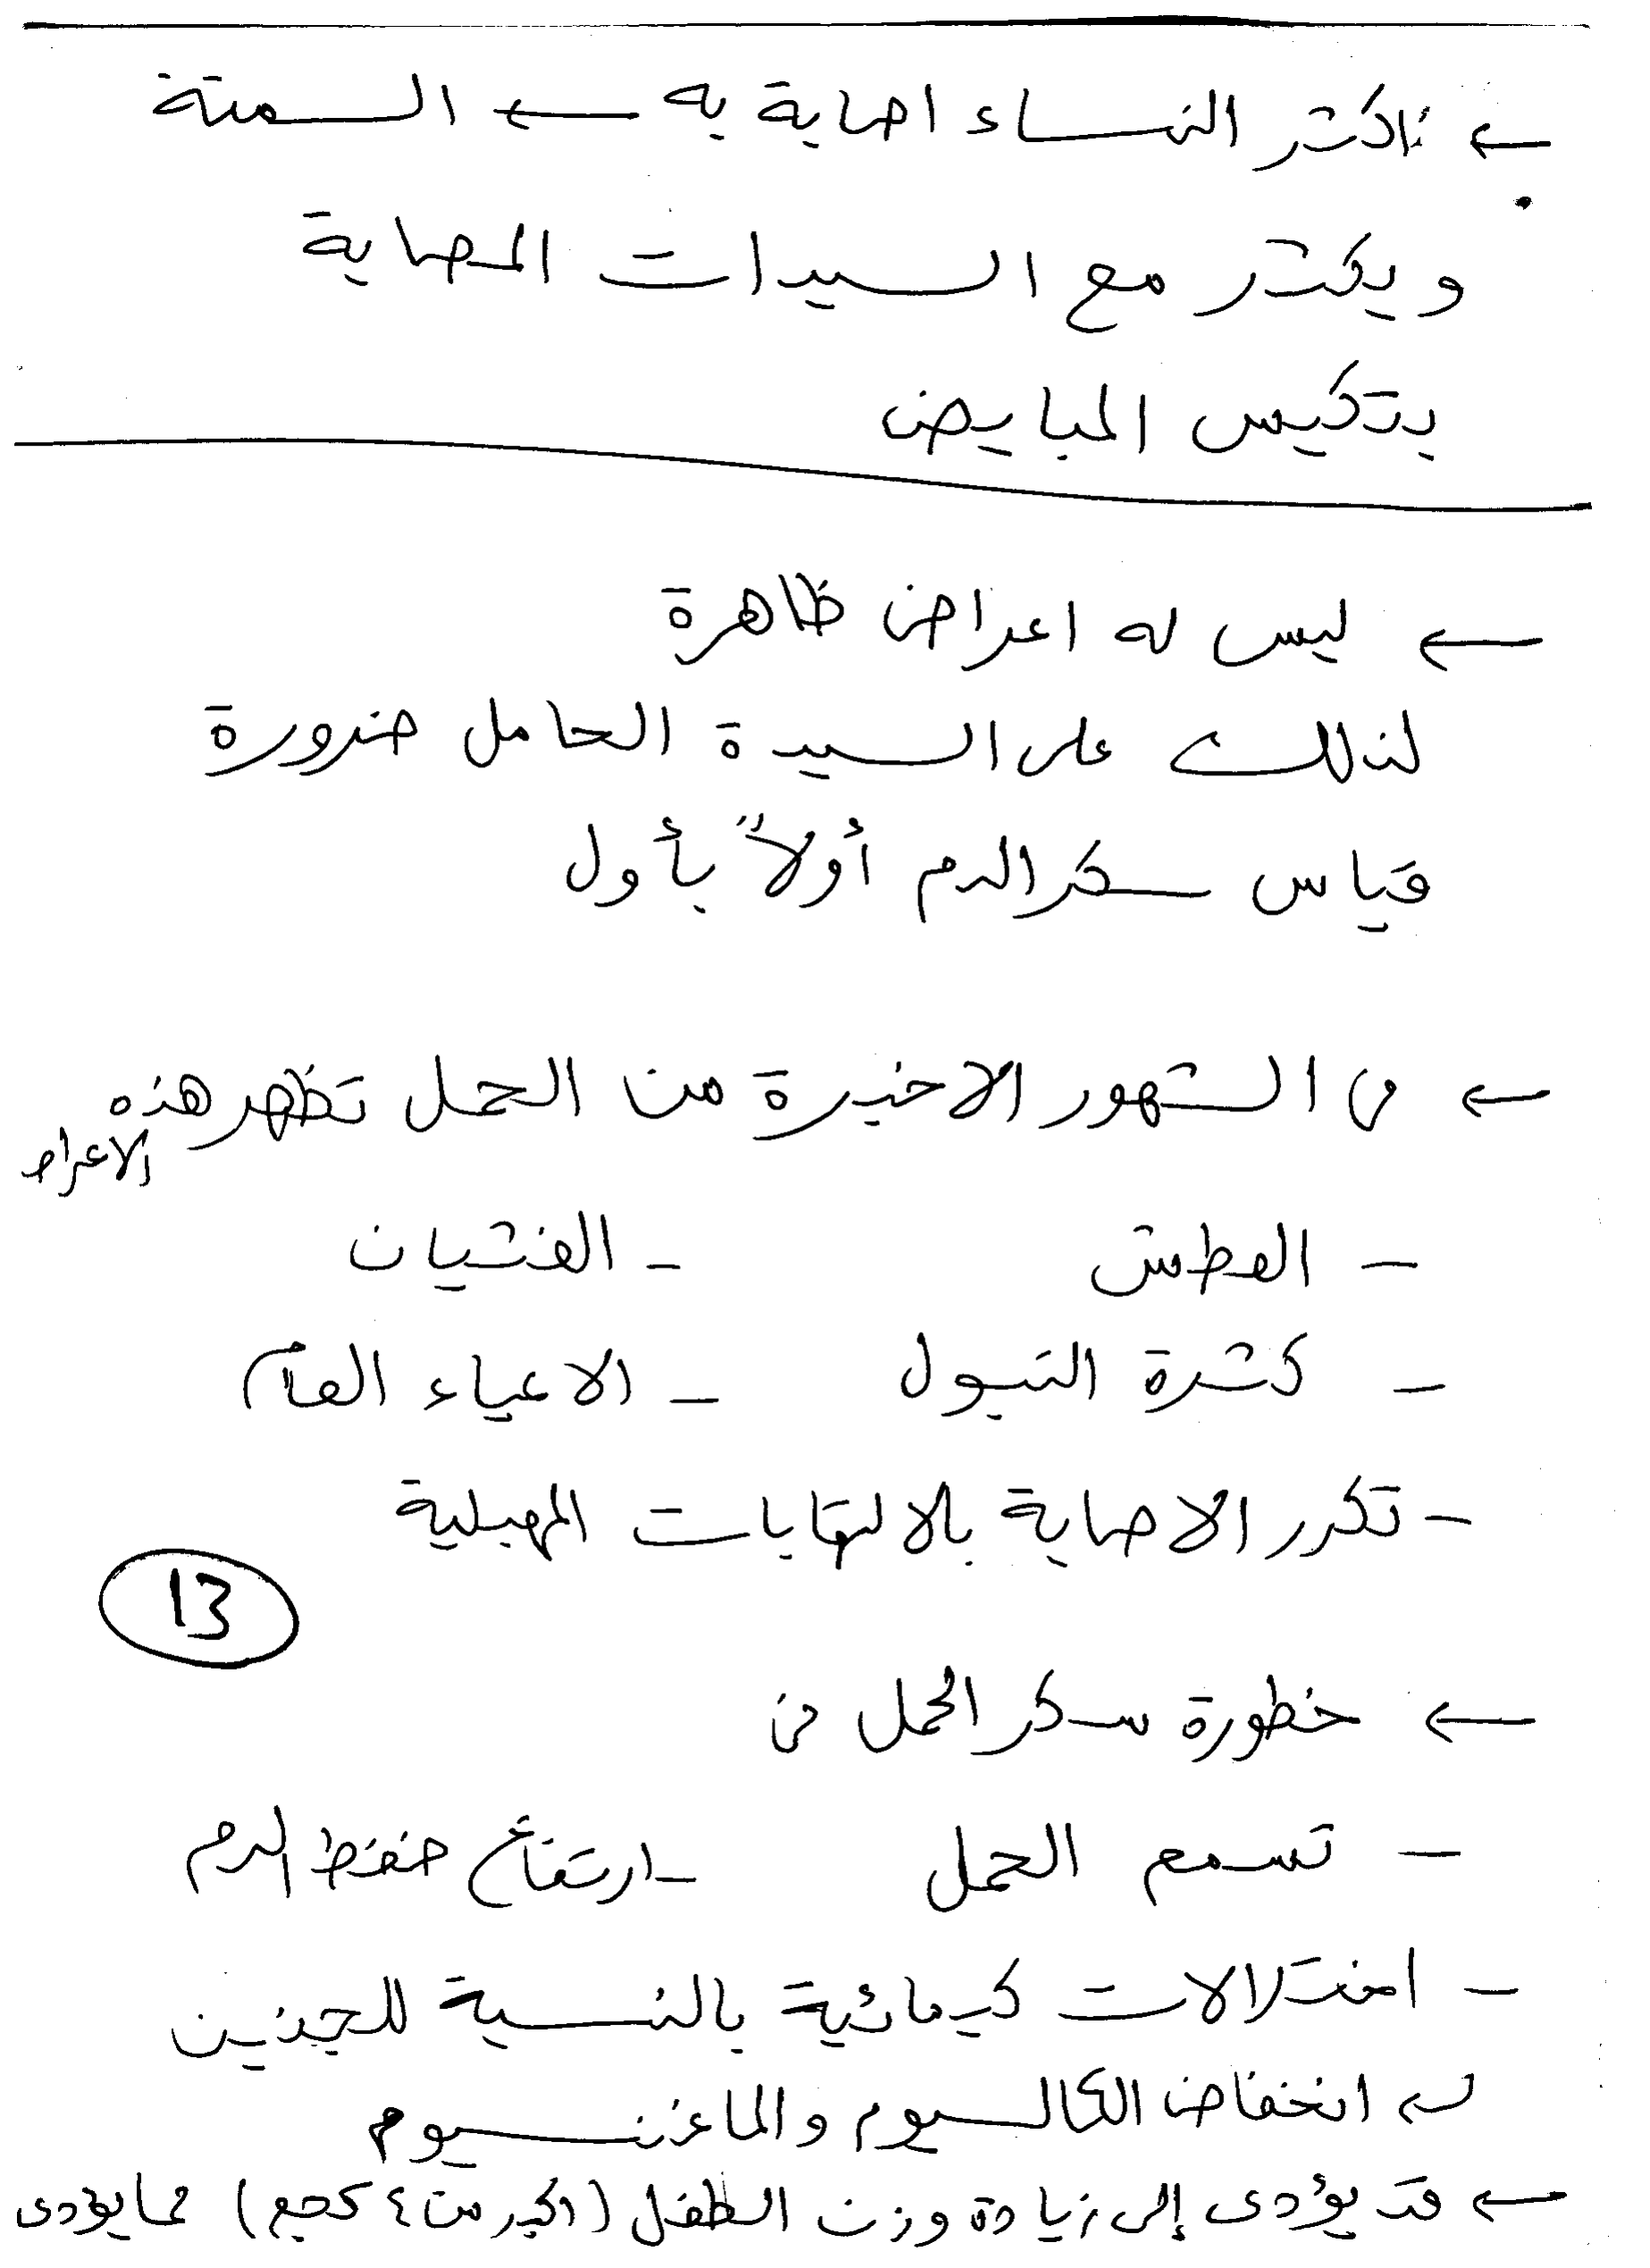 ← اكثر النساء اصابة به ← السمنة
و يكثر مع السيدات المصابة
بتكيس المبايض
← ليس له اعراض ظاهرة
لذلك على السيدة الحامل ضرورة
قياس سكر الدم أولاً بأول
← فى الشهور الاخيرة من الحمل تظهر هذه
الاعراض
- العطش - الغثيان
- كثرة التبول - الاعياء العام
- تكرر الاصابة بالالتهابات المهبلية
13
← خطورة سكر الحمل فى
- تسمم الحمل - ارتفاع ضغط الدم
- اختلالات كيمائية بالنسبة للجنين
↲ انخفاض الكالسيوم والماغنسيوم
← قد يؤدى إلى زيادة وزن الطفل (اكبر من ٤ كجم) مما يؤدى